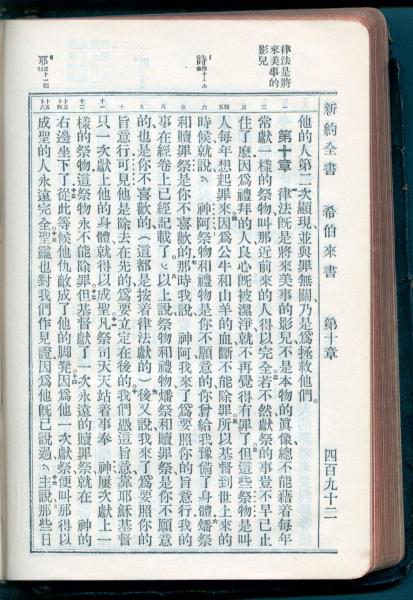 新約全書　希伯來書　第十章　四百九十二
律法是將
來美事的
影兒
他的人第二次顯現並與罪無關乃是爲拯救他們。
第十章　律法旣是將來美事的影兒不是本物的眞像總不能藉着每年
常獻一樣的祭物叫那近前來的人得以完全若不然獻祭的事豈不早已止
住了麼因爲禮拜的人良心旣被潔淨就不再覺得有罪了但這些祭物是叫
人每年想起罪來因爲公牛和山羊的血斷不能除罪所以基督到世上來的
時候就說　神阿祭物和禮物是你不願意的你曾給我豫備了身體燔祭
和贖罪祭是你不喜歡的那時我說　神阿我來了爲要照你的旨意行我的
事在經卷上已經記載了以上說祭物和禮物燔祭和贖罪祭是你不願意
的也是你不喜歡的(這都是按着律法獻的)後又說我來了爲要照你的
旨意行可見他是除去在先的爲要立定在後的我們憑這旨意靠耶穌基督
只一次獻上他的身體就得以成聖凡祭司天天站着事奉　神屢次獻上一
樣的祭物這祭物永不能除罪但基督獻了一次永遠的贖罪祭就在　神的
右邊坐下了從此等候他仇敵成了他的脚凳因爲他一次獻祭便叫那得以
成聖的人永遠完全聖靈也對我們作見證因爲他旣已說過主說那些日